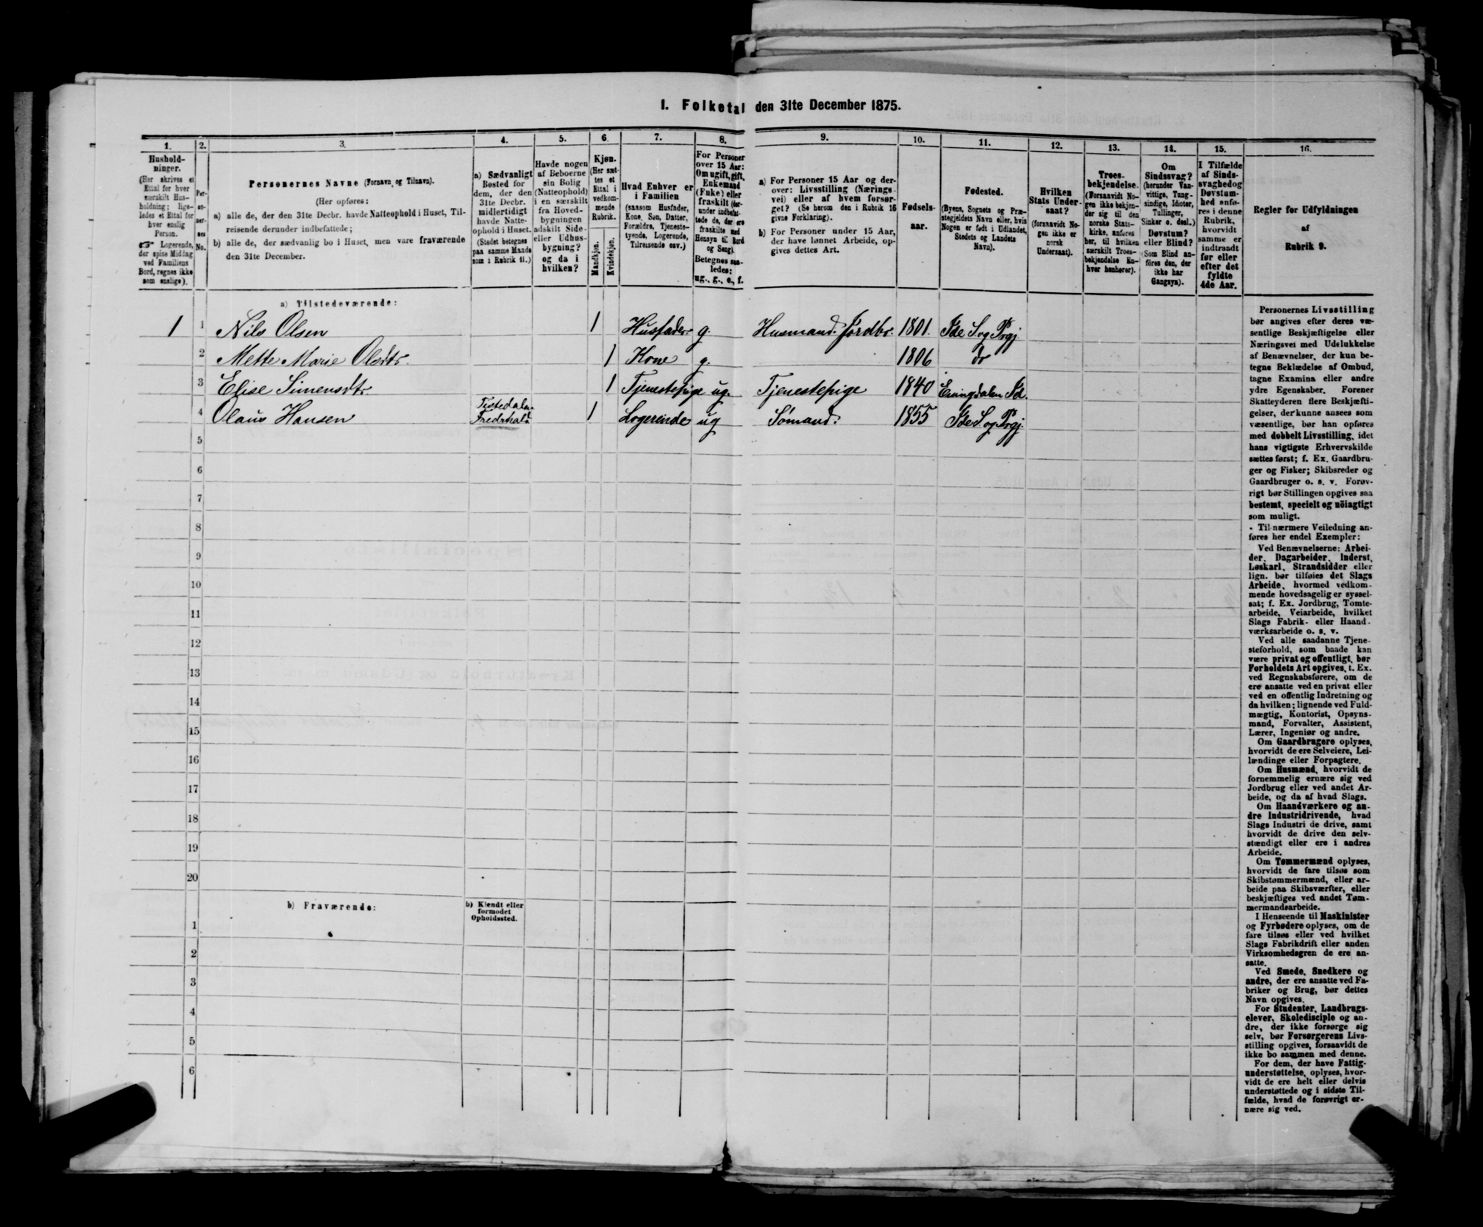 I. Folketal den 31te December 1875.
1.
2.
3.
4.
5.
6.
7.
8.
9.
10.
11.
12.
13.
14.
15.
16.
Hushold-
ninger.
(Her skrives et
Ettal for hver
særskilt Hus-
holdning; lige-
ledes et Ettal for
hver enslig
Person.
☞ Logerende,
der spise Middag
ved Familiens
Bord, regnes ikke
som enslige).
Per-
so-
ner-
nes
No.
Personernes Navne (Fornavn og Tilnavn).
(Her opføres:
a) alle de, der den 31te Decbr. havde Natteophold i Huset, Til-
reisende derunder indbefattede;
b) alle de, der sædvanlig bo i Huset, men vare fraværende
den 31te December.
a) Sædvanligt
Bosted for
dem, der den
31te Decbr.
midlertidigt
havde Natte-
ophold i Huset.
(Stedet betegnes
paa samme Maade
som i Rubrik 11.)
Havde nogen
af Beboerne
sin Bolig
(Natteophold)
i en særskilt
fra Hoved-
bygningen
adskilt Side-
eller Udhus-
bygning?
og da i
hvilken?
Kjøn.
(Her sæt-
tes et
Ettal i
vedkom-
mende
Rubrik.
Mandkjøn.
Kvindekjøn.
Hvad Enhver er
i Familien
(saasom Husfader,
Kone, Søn, Datter,
Forældre, Tjeneste-
tyende, Logerende,
Tilreisende osv.)
For Personer
over 15 Aar:
Om ugift, gift,
Enkemand
(Enke) eller
fraskilt (her-
under indbefat-
tede de, der ere
fraskilte med
Hensyn til Bord
og Seng).
Betegnes saa-
ledes:
ug., g., e., f.
a) For Personer 15 Aar og der-
over: Livsstilling (Nærings-
vei) eller af hvem forsør-
get? (Se herom den i Rubrik 16
givne Forklaring).
b) For Personer under 15 Aar,
der have lønnet Arbeide, op-
gives dettes Art.
Fødsels-
aar.
Fødested.
(Byens, Sognets og Præ-
stegjeldets Navn eller, hvis
Nogen er født i Udlandet,
Stedets og Landets
Navn).
Hvilken
Stats Under-
saat?
(forsaavidt No-
gen ikke er
norsk
Undersaat).
Troes-
bekjendelse.
(Forsaavidt No-
gen ikke bekjen-
der sig til den
norske Stats-
kirke, anføres
her, til hvilken
særskilt Troes-
bekjendelse En-
hver henhører).
Om
Sindssvag?
(herunder Van-
vittige, Tung-
sindige, Idioter,
Tullinger,
Sinker o. desl.)
Døvstum?
eller Blind?
(Som Blind an-
føres den, der
ikke har
Gangsyn).
I Tilfælde
af Sinds-
svaghed og
Døvstum-
hed anfø-
res i denne
Rubrik,
hvorvidt
samme er
indtraadt
før eller
efter det
fyldte
4de Aar.
Regler for Udfyldningen
af
Rubrik 9.
a) Tilstedeværende:
1 1 Nils Olsen 1 Husfader g Husmand. Jordbr. 1801 Ide S og Prgj
2 Mette Marie Olsdtr. 1 Kone g. 1806 do
3 Elise Simensdtr 1 Tjenestepige ug. Tjenestepige 1840 Enningdalen Id.
4 Olaus Hansen Tistedalen Fredrhald 1 Logerende ug Sømand. 1855 Ide S og Prgj
5
6
7
8
9
10
11
12
13
14
15
16
17
18
19
20
b) Fraværende:
b) Kjendt eller
formodet
Opholdssted.
1
2
3
4
5
6
Personernes Livsstilling
bør angives efter deres væ-
sentlige Beskjæftigelse eller
Næringsvei med Udelukkelse
af Benævnelser, der kun be-
tegne Beklædelse af Ombud,
tagne Examina eller andre
ydre Egenskaber. Forener
Skatteyderen flere Beskjæfti-
gelser, der kunne ansees som
væsentlige, bør han opføres
med dobbelt Livsstilling, idet
hans vigtigste Erhvervskilde
sættes først; f. Ex. Gaardbru-
ger og Fisker; Skibsreder og
Gaardbruger o. s. v. Forøv-
rigt bør Stillingen opgives saa
bestemt, specielt og nöiagtigt
som muligt.
- Til nærmere Veiledning an-
føres her endel Exempler:
Ved Benævnelserne: Arbei-
der, Dagarbeider, Inderst,
Løskarl, Strandsidder eller
lign. bør tilføies det Slags
Arbeide, hvormed vedkom-
mende hovedsagelig er syssel-
sat; f. Ex. Jordbrug, Tomte-
arbeide, Veiarbeide, hvilket
Slags Fabrik- eller Haand-
værksarbeide o. s. v.
Ved alle saadanne Tjene-
steforhold, som baade kan
være privat og offentligt, bør
Forholdets Art opgives, t. Ex.
ved Regnskabsførere, om de
ere ansatte ved en privat eller
ved en offentlig Indretning og
da hvilken; lignende ved Fuld-
mægtig, Kontorist, Opsyns-
mand, Forvalter, Assistent,
Lærer, Ingeniør og andre.
Om Gaardbrugere oplyses,
hvorvidt de ere Selveiere, Lei-
lændinge eller Forpagtere.
Om Husmænd, hvorvidt de
fornemmelig ernære sig ved
Jordbrug eller ved andet Ar-
beide, og da af hvad Slags.
Om Haandværkere og an-
dre Industridrivende, hvad
Slags Industri de drive, samt
hvorvidt de drive den selv-
stændigt eller ere i andres
Arbeide.
Om Tømmermænd oplyses,
hvorvidt de fare tilsøs som
Skibstømmermænd, eller ar-
beide paa Skibsværfter, eller
beskjæftiges ved andet Tøm-
mermandsarbeide.
I Henseende til Maskinister
og Fyrbødere oplyses, om de
fare tilsøs eller ved hvilket
Slags Fabrikdrift eller anden
Virksomhedsgren de ere an-
satte.
Ved Smede, Snedkere og
andre, der ere ansatte ved Fa-
briker og Brug, bør dettes
Navn opgives.
For Studenter, Landbrugs-
elever, Skoledisciple og an-
dre, der ikke forsørge sig
selv, bør Forsørgerens Livs-
stilling opgives, forsaavidt de
ikke bo sammen med denne.
For dem, der have Fattig-
understøttelse, oplyses, hvor-
vidt de ere helt eller delvis
understøttede og i sidste Til-
fælde, hvad de forøvrigt er-
nære sig ved.